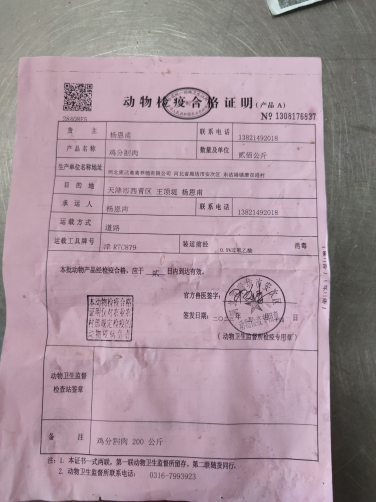 动物检疫合格证明(产品 A)
№ 1308176837
货 主 杨恩甫 联系电话 13821492018
产品名称 鸡分割肉 数量及单位 贰佰公斤
生产单位名称地址
目 的 地 天津市西青区 王顶堤 杨恩甫
承 运 人 杨恩甫 联系电话 13821492018
运载方式 道路
运载工具牌号 津 RTC879 装运前经 0.5%过氧乙酸 消毒
本批动物产品经检疫合格,应于 贰 日内到达有效。
官方兽医签字:
签发日期:
(动物卫生监督所检疫专用章)
动物卫生监督
检查站签章
备 注 鸡分割肉 200 公斤
注:1. 本证书一式两联,第一联动物卫生监督所留存,第二联随货同行。
2. 动物卫生监督所联系电话: 0316-7993923